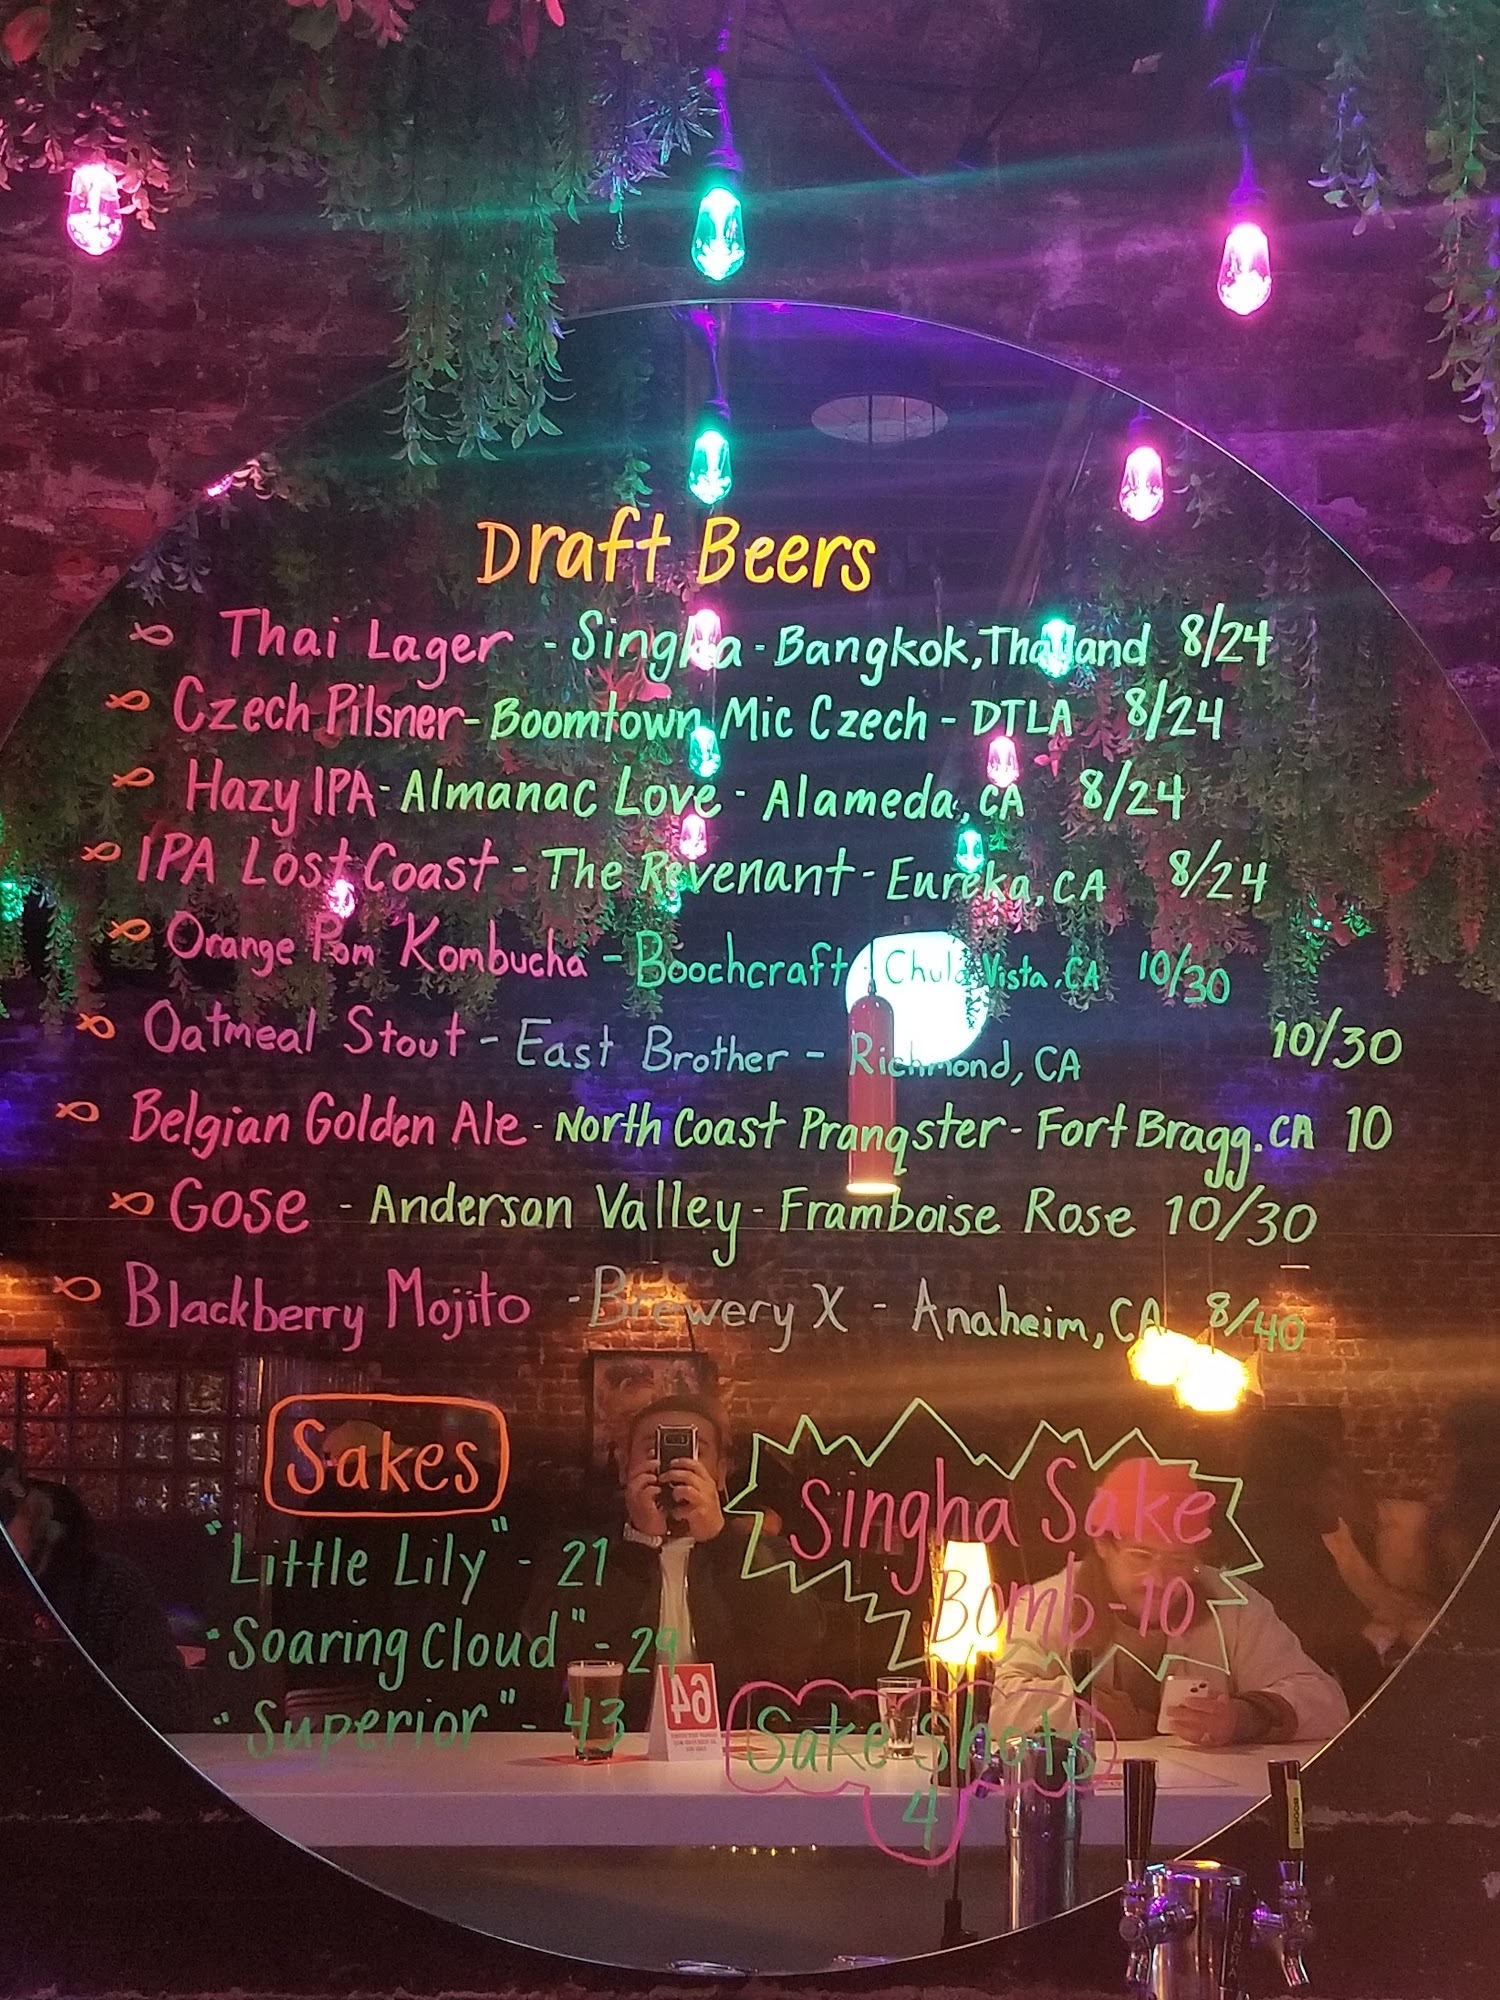 Draft Beers
Thai Lager - Singha - Bangkok, Thailand 8/24
Czech Pilsner - Boomtown Mic Czech - DTLA 8/24
Hazy IPA - Almanac Love - Alameda, CA 8/24
IPA Lost Coast - The Revenant - Eureka, CA 8/24
Orange Pom Kombucha - Boochcraft - Chula Vista, CA 10/30
Oatmeal Stout - East Brother - Richmond, CA 10/30
Belgian Golden Ale - North Coast Pranqster - Fort Bragg, CA 10
Gose - Anderson Valley - Framboise Rose 10/30
Blackberry Mojito - Brewery X - Anaheim, CA 8/40
Sakes
"Little Lily" - 21
"Soaring Cloud" - 29
"Superior" - 43
Singha Sake
Bomb - 10
Sake Shots
4
64
BOOCH